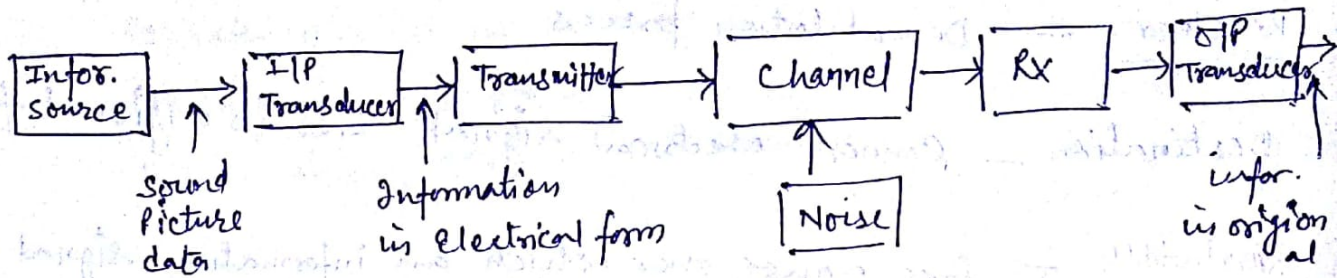 Infor.
Source
I/P
Transducer
Transmitter
Channel
RX
O/P
Transducer
Sound
Picture
data
Information
in Electrical form
Noise
infor.
in origion
al